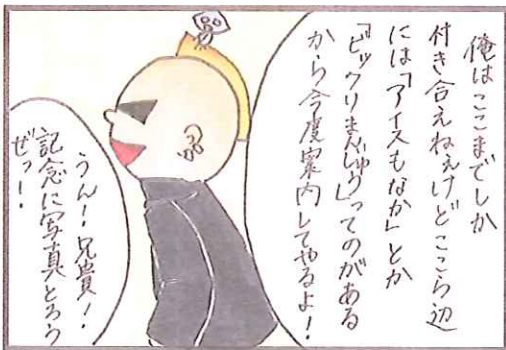 俺はここまでしか
付き合えねぇけどここら辺
には「アイスもなか」とか
「ビックリまんじゅう」ってのがある
から今度案内してやるよ！
うん！兄貴！
記念に写真とろう
ぜっ！